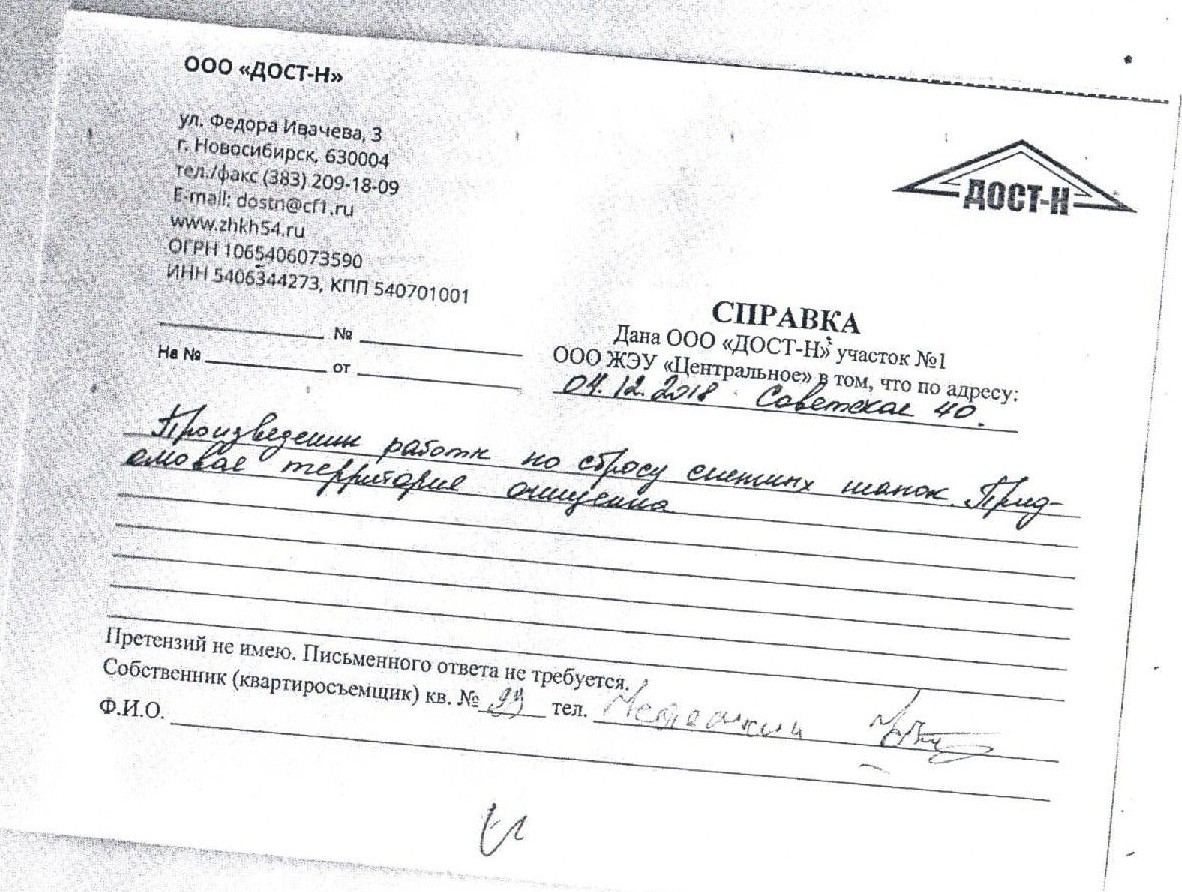 ООО «ДОСТ-Н»
ул. Федора Ивачева, 3
г. Новосибирск, 630004
тел./факс (383) 209-18-09
E-mail: dostn@cf1.ru
www.zhkh54.ru
ОГРН 1065406073590
ИНН 5406344273, КПП 540701001
ДОСТ-Н
№
На № от
СПРАВКА
Дана ООО «ДОСТ-Н» участок №1
ООО ЖЭУ «Центральное» в том, что по адресу:
04.12.2018 Советская 40.
Произведенны работы по сбросу снежных шапок. Прид-
омовая территория очищенна
Претензий не имею. Письменного ответа не требуется.
Собственник (квартиросъемщик) кв. № тел.
Ф.И.О.